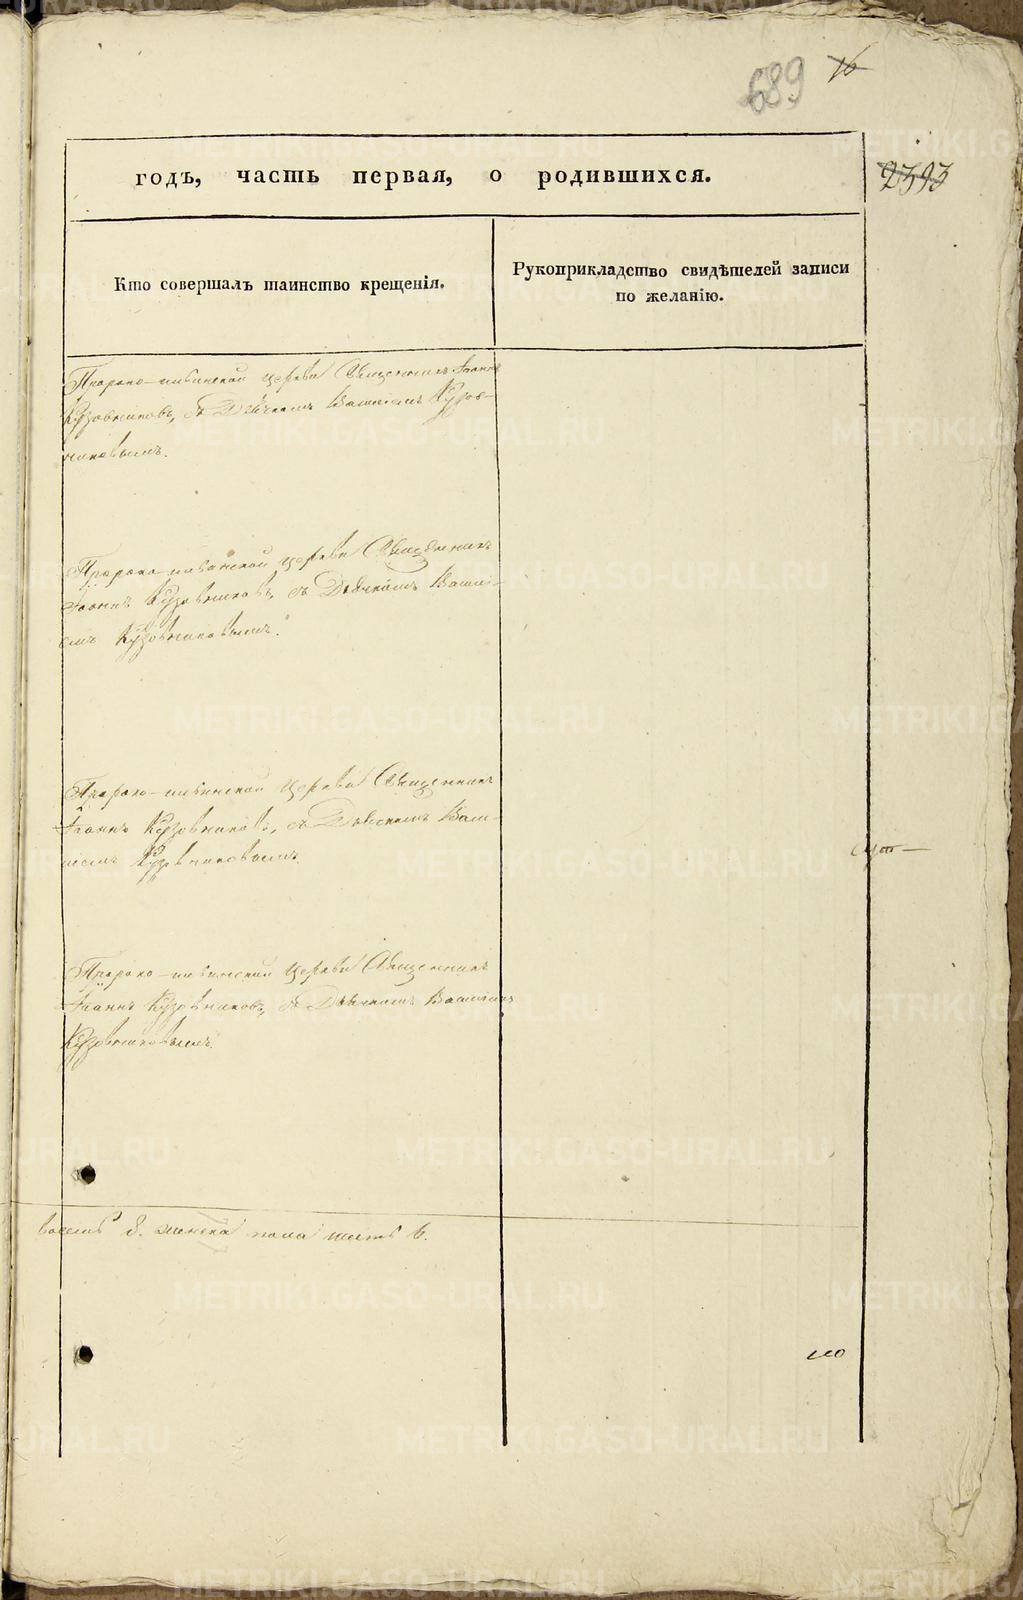 689 16
2393
годъ, часть первая, о родившихся.
Кто совершалъ таинство крещенія.
Рукоприкладство свидѣтелей записи
по желанію.
Пророко-ильинской церкви Священникъ Іоаннъ
Кузовниковъ, съ Дьячкомъ Василіемъ Кузов-
никовымъ.
Пророко-ильинской церкви Священникъ
Іоаннъ Кузовниковъ, съ Дьячкомъ Васил-
емъ Кузовниковымъ.
Пророко-ильинской церкви Священникъ
Іоаннъ Кузовниковъ, съ Дьячкомъ Васи-
ліемъ Кузовниковымъ.
Пророко-ильинской церкви Священникъ
Іоаннъ Кузовниковъ, съ Дьячкомъ Василіемъ
Кузовниковымъ.
восемь 8. женска пола шесть 6.
METRIKI.GASO-URAL.RU